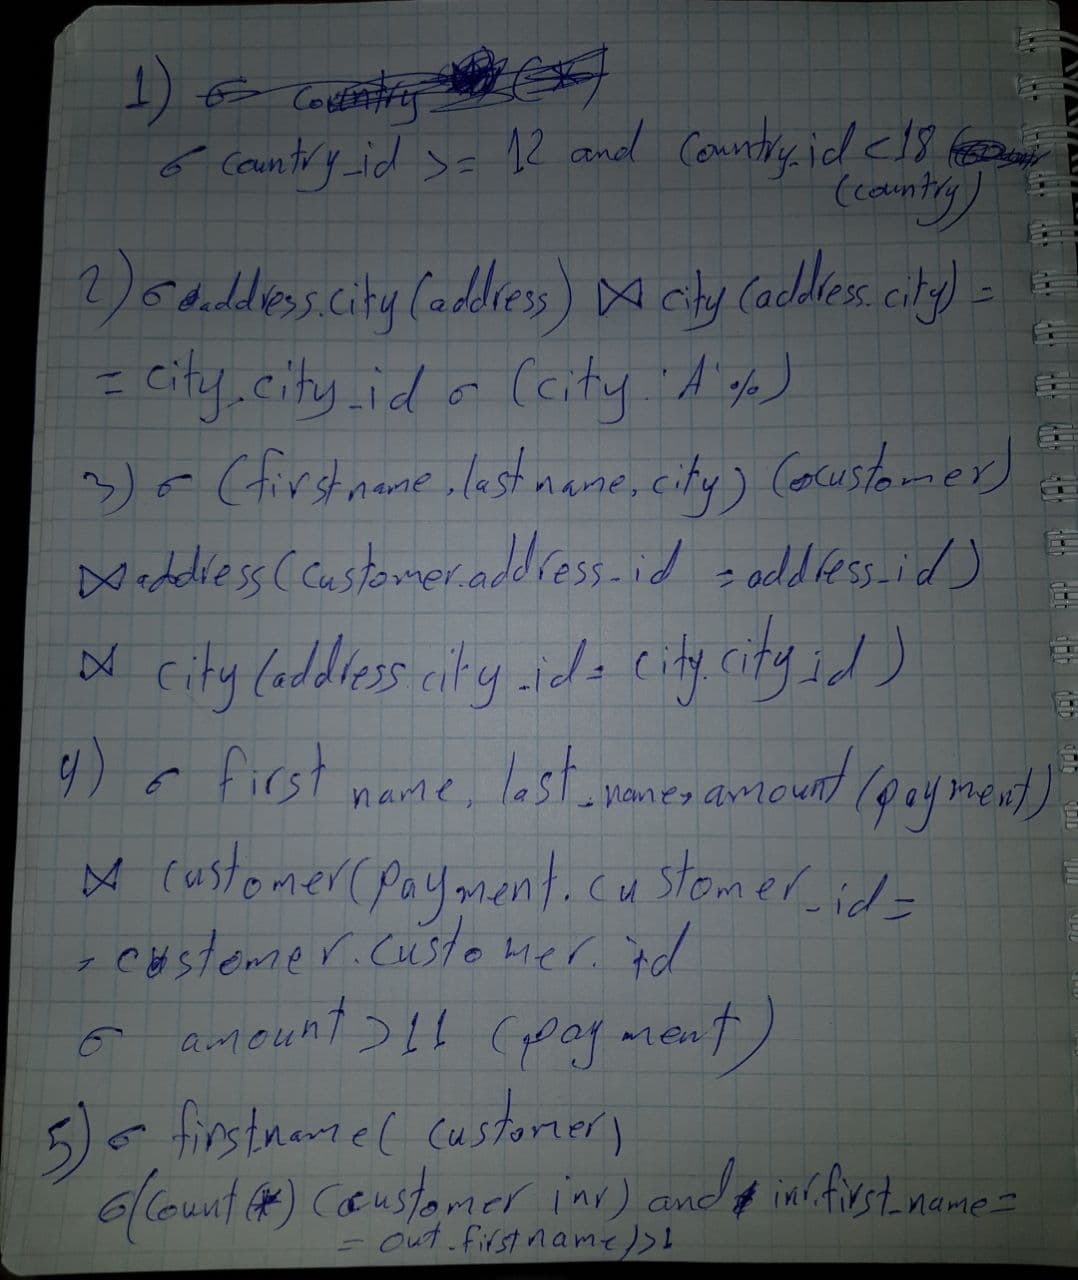 1) σ country (*)
σ country_id >= 12 and country_id < 18
(country)
2) σ address.city (address) ⋈ city (address.city) =
= city.city_id σ (city 'A'%)
3) σ (first name, last name, city) (customer)
⋈ address (customer.address_id = address_id)
⋈ city (address city_id = city.city_id)
4) σ first name, last_name, amount (payment)
⋈ customer (payment.customer_id =
= customer.customer.id
σ amount > 11 (payment)
5) σ firstname ( customer)
σ (count (*) (customer inr) and inr.first_name =
= out.firstname) > 1